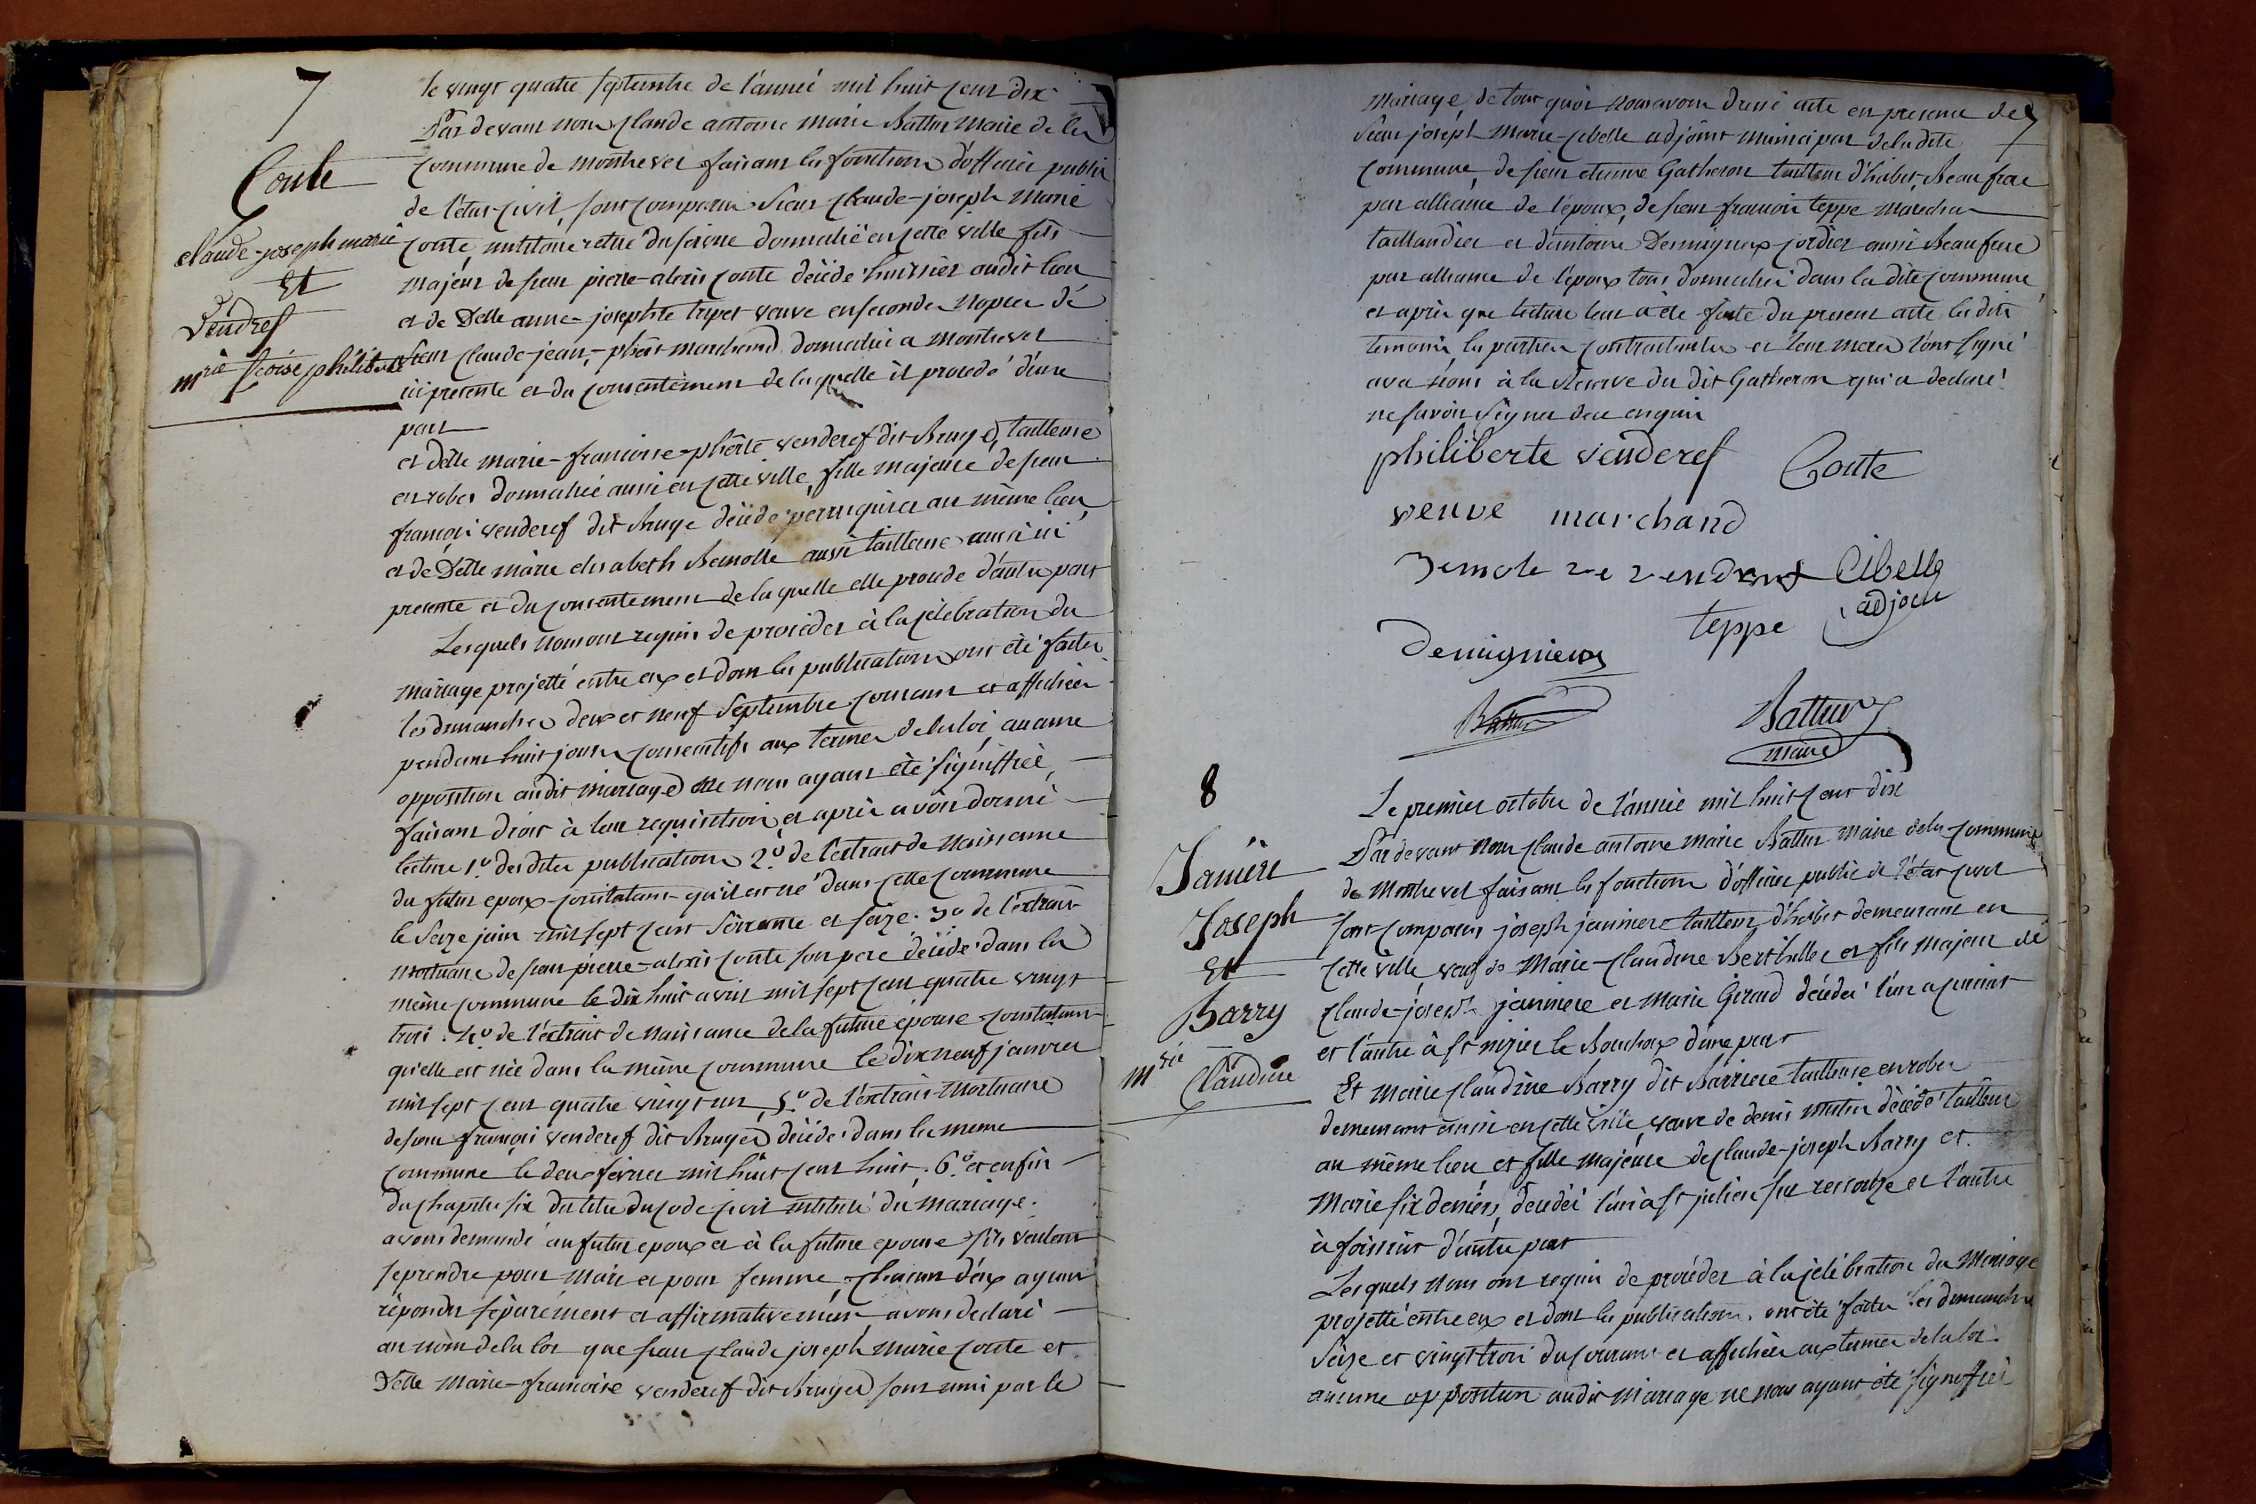 7
Conte
claude-joseph marie
Et
Vendref
mrie fcoise philiberte
le vingt quatre septembre de l'année mil huit cent dix
Par devant nous claude antoine marie Battur maire de la
commune de montrevel faisant les fonctions d'officier public
de l'etat civil, sont comparus sieur claude-joseph marie
conte, militaire retiré du service domicilié en cette ville fils
majeur de sieur pierre-alexis conte décédé huissier audit lieu
et de Delle anne-josephte tripet veuve en secondes nopces dé
sieur claude-jean-phert marchand domiciliée a montrevel
ici presente et du consentement de laquelle il procede d'une
part
et delle marie-francoise-pherte venderef dit Bruyed tailleuse
en robes domiciliée aussi en cette ville, fille majeure de sieur
françois venderef dit Bruye décédé perruquier au même lieu
et de Delle marie elisabeth Bemolle aussi tailleuse aussi ici
presente et du consentement de laquelle elle procede d'autre part
Lesquels nous ont requis de procéder à la célébration du
mariage projetté entre eux et dont les publications ont été faites
les dimanches deux et neuf septembre courant et affichées
pendant huit jours consecutifs aux termes de la loi, aucune
opposition audit mariage ne nous ayant été signiffiée,
faisant droit à leur requisition, et après avoir donné
lecture 1.o des dites publications 2.o de l'extrait de naissance
du futur epoux constatant qu'il est né dans cette commune
le seize juin mil sept cent soixante et seize. 3o de l'extrait
mortuaire de sieur pierre-alexis conte son pere décédé dans la
même commune le dix huit avril mil sept cent quatre vingt
trois. 4.o de l'extrait de naissance de la future épouse constatant
qu'elle est née dans la même commune le dix neuf janvier
mil sept cent quatre vingt un, 5.o de l'extrait mortuaire
de sieur françois venderef dit Bruyed décédé dans la meme
commune le deux février mil huit cent huit. 6.o et enfin
du chapitre six du titre du code civil intitulé du mariage.
avons demandé au futur epoux et à la future epouse s'ils veulent
se prendre pour mari et pour femme chacun d'eux ayant
répondu séparément et affirmativement avons declaré
au nom de la loi que sieur claude joseph marie conte et
Delle marie-francoise venderef dit Bruyed sont unis par le
mariage, de tout quoi nous avons dressé acte en presence de
sieur joseph marie cibelle adjoint municipal de la dite
commune, de sieur etienne Gatheron tailleur d'habit, Beau frere
par alliance de l'époux, de sieur francois teppe marechal
taillandier et d'antoine Demigneux cordier aussi Beau frere
par alliance de l'epoux tous domiciliés dans la dite commune,
et après que lecture leur a été faite du present acte les dits
temoins les parties contractantes et leur meres l'ont signé
avec nous à la reserve du dit Gatheron qui a declaré
ne savoir signer de ce enquis
philiberte venderef Conte
veuve marchand
Bemole ve vendref Cibelle
teppe adjoin
Demignieux
Battur Battur
maire
8
Janière
Joseph
Et
Barry
mrie Claudine
Le premier octobre de l'année mil huit cent dix
Par devant nous claude antoine marie Battur maire de la commune
de Montrevel faisant les fonctions d'officier public de l'état civil
sont comparus joseph janniere tailleur d'habit demeurant en
cette ville, veuf de Marie-claudine Berthillier et fils majeur de
claude-joseph janniere et Marie Giraud décédés l'un a curciat
et l'autre à st nizier le Bouchoux d'une part
Et Marie claudine Barry dit Barriere tailleuse en robes
demeurant aussi en cette ville, veuve de denis décédé tailleur
au même lieu, et fille majeure de claude-joseph Barry et
Marie six deniers, décédés l'un à st julien sur ressouze et l'autre
à foissiat d'autre part
Lesquels nous ont requis de procéder à la célébration du Mariage
projetté entre eux et dont les publications ont été faites les dimanches
seize et vingt trois du courant et affichées aux termes de la loi
aucune opposition audit Mariage ne nous ayant été signiffiée